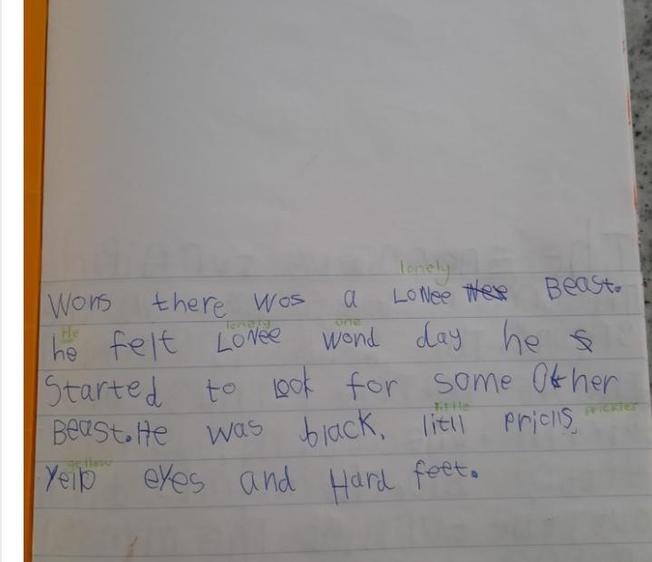 lonely
Wons there wos a LoNee Beast.
He lonely one
he felt LoNee wond day he s
Started to look for some Other
Beast. He was black, litll priclls,
little prickles
yellow
Yello eyes and Hard feet.